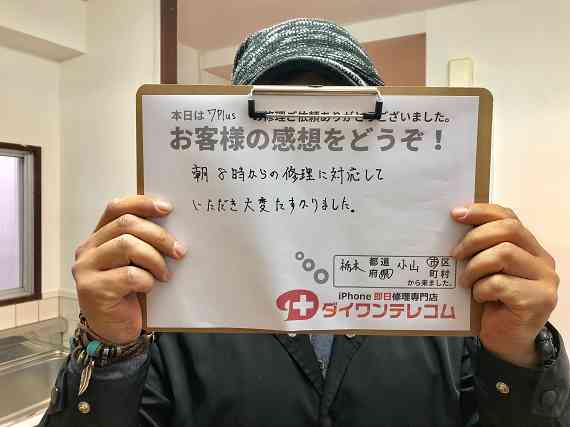 本日は 7Plus の修理ご依頼ありがとうございました。
お客様の感想をどうぞ！
朝8時からの修理に対応して
いただき大変たすかりました。
栃木 都道府県 小山 市区町村
から来ました。
iPhone 即日修理専門店
ダイワンテレコム